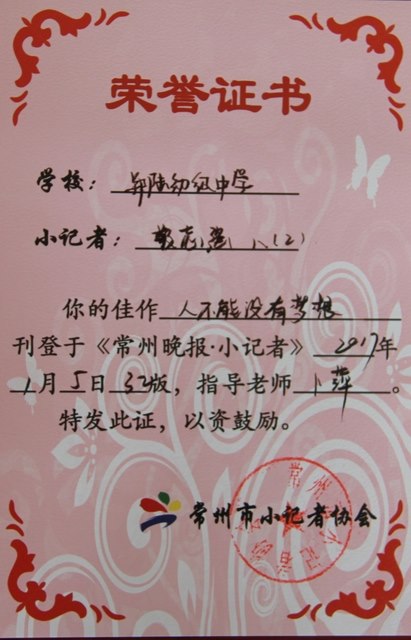 荣誉证书
学校：初级中学
小记者：八(2)
你的佳作人不能没有梦想
刊登于《常州晚报·小记者》2017年
1月5日32版，指导老师卜萍。
特发此证，以资鼓励。
常州市小记者协会